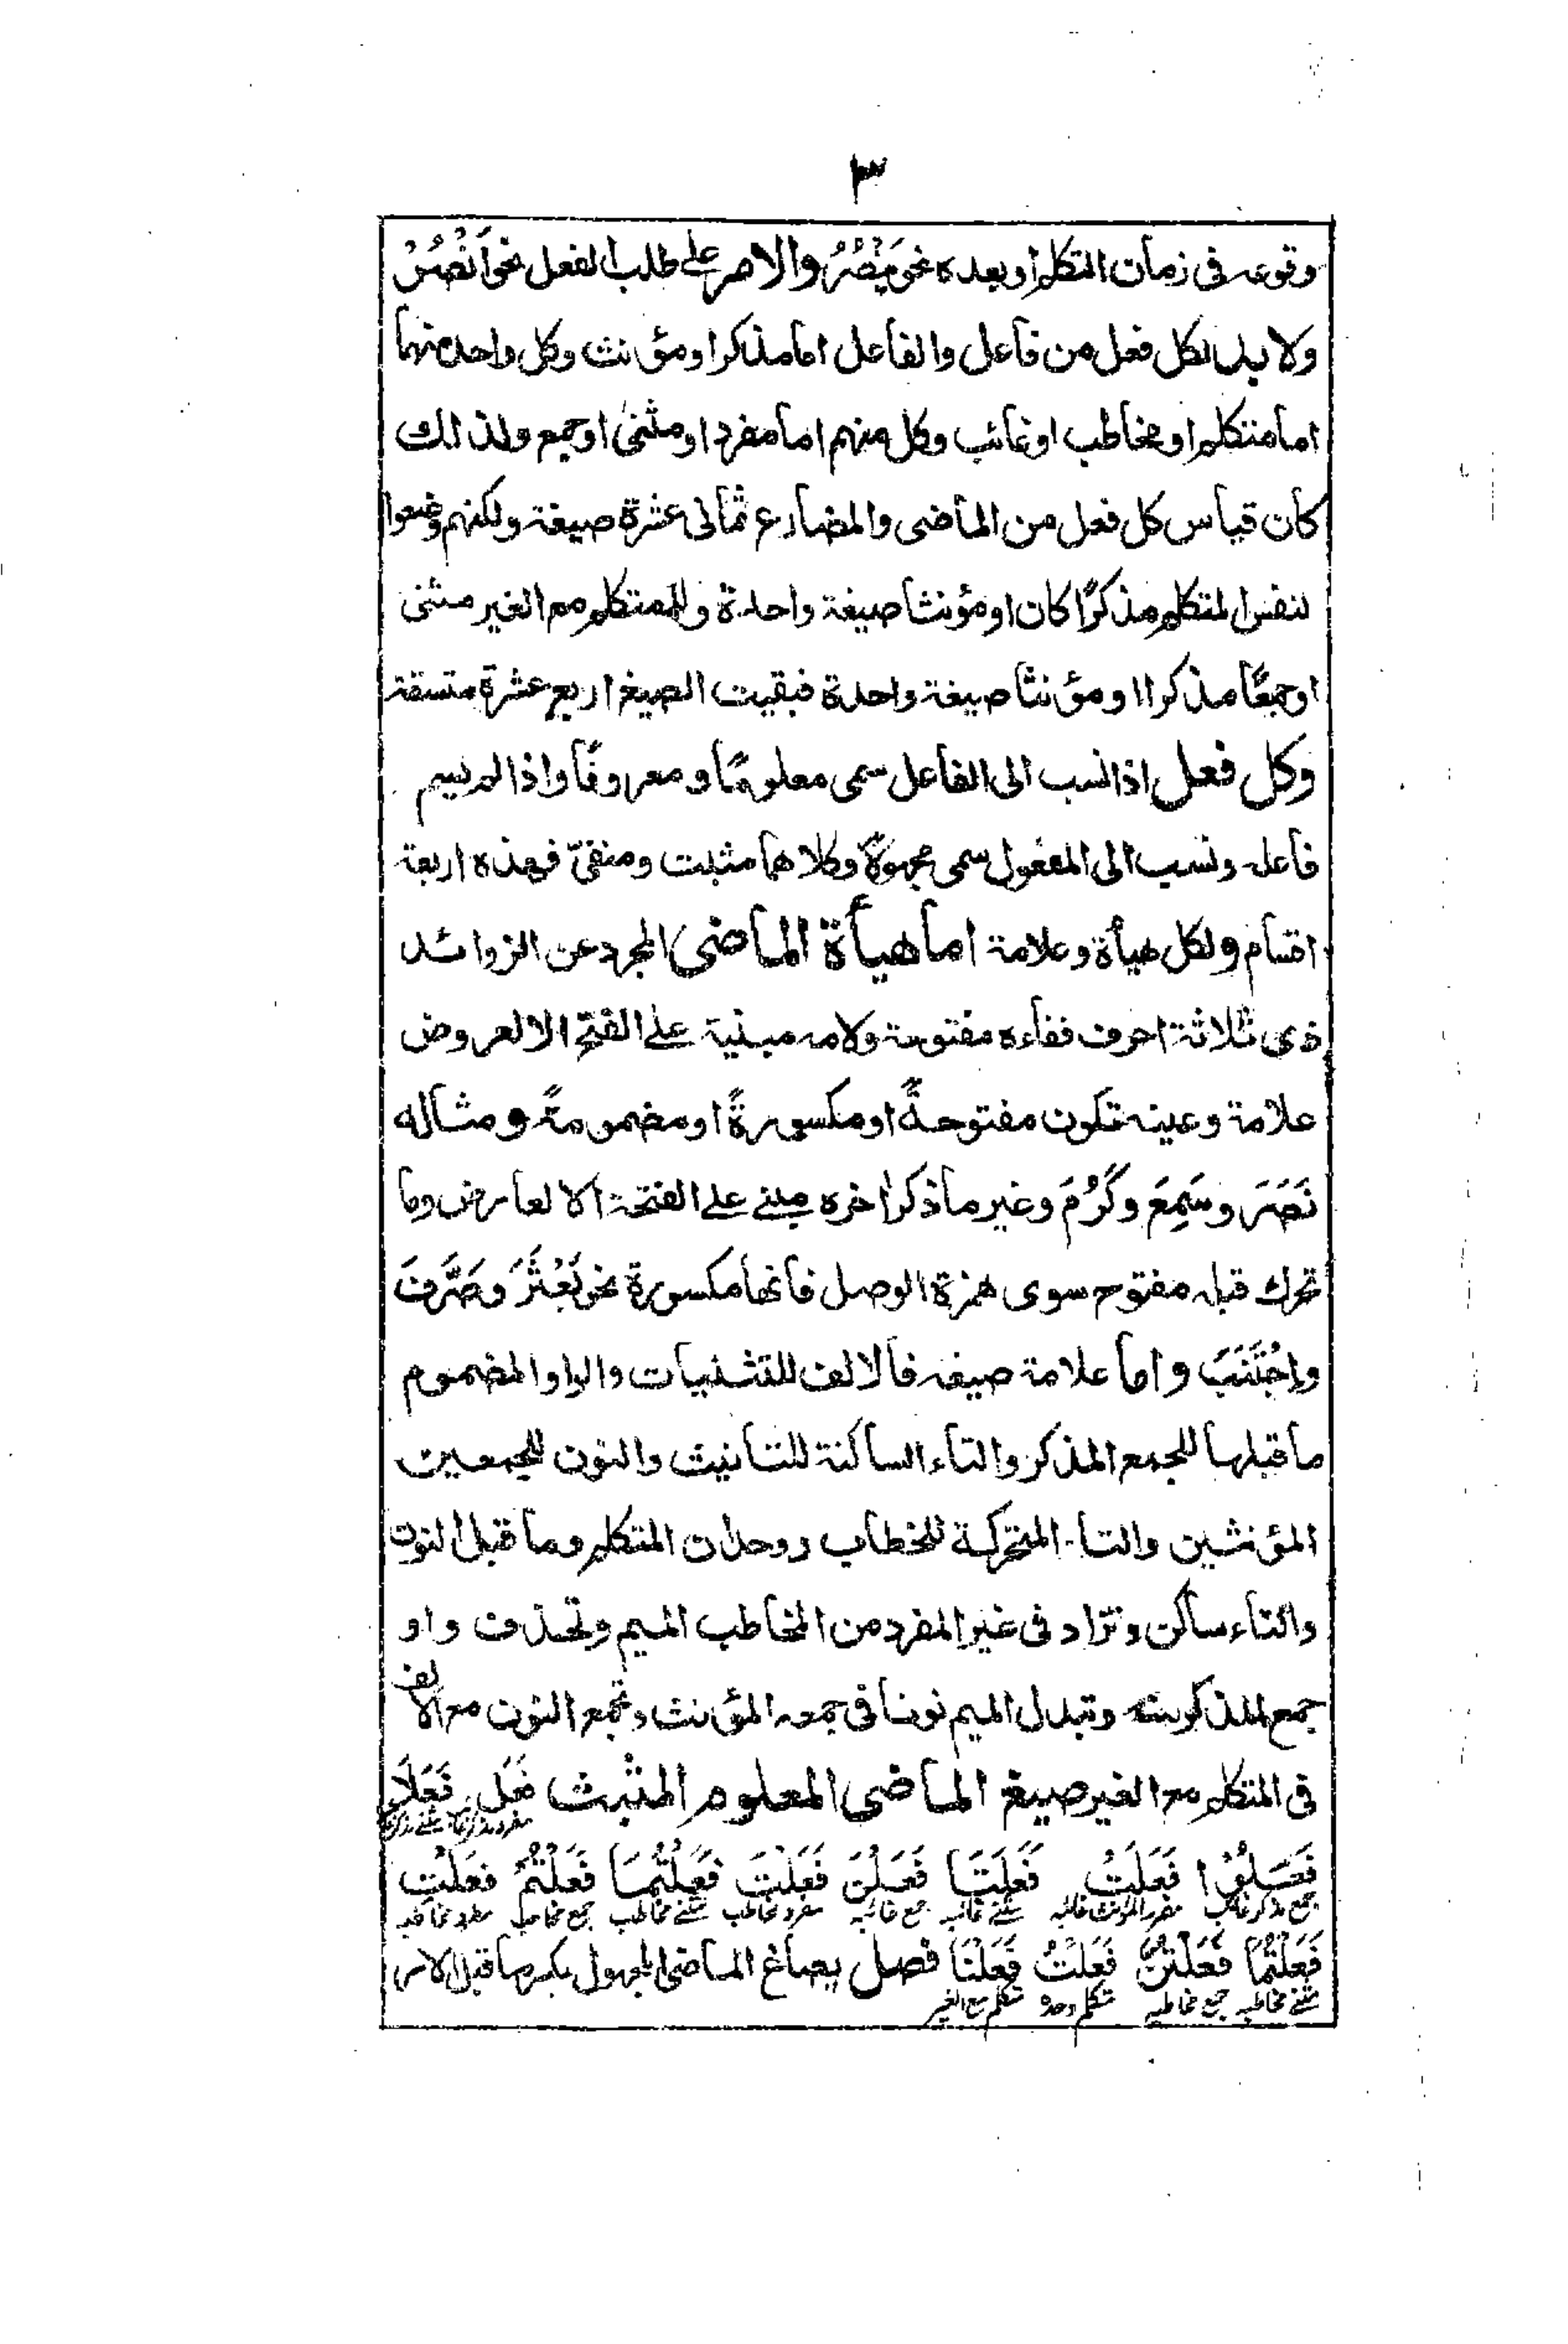 ٣
وقوعه فى زمان التكلم او بعده نحو يَنْصُرُ والامر على طلب الفعل نحو اُنْصُرْ
ولا بد لكل فعل من فاعل والفاعل اما مذكر او مؤنث وكل واحد منهما
اما متكلم او مخاطب او غائب وكل منهم اما مفرد او مثنى او جمع ولذلك
كان قياس كل فعل من الماضى والمضارع ثمانى عشرة صيغة ولكنهم وضعوا
لنفس المتكلم مذكرًا كان او مؤنثا صيغة واحدة وللمتكلم مع الغير مثنى
او جمعًا مذكرا او مؤنثا صيغة واحدة فبقيت الصيغ اربع عشرة متسقة
وكل فعل اذا نسب الى الفاعل سمى معلومًا و معروفًا واذا لم يسم
فاعله ونسب الى المفعول سمى مجهولًا وكلاهما مثبت ومنفىّ فهذه اربعة
اقسام ولكل هيأة وعلامة اما هيأة الماضى المجرد عن الزوائد
ذى ثلاثة احرف ففاءه مفتوحة ولامه مبنية على الفتح الا لعروض
علامة وعينه تكون مفتوحةً او مكسورةً او مضمومةً ومثاله
نَصَرَ وسَمِعَ وكَرُمَ وغير ما ذكر اخره مبنى على الفتحة الا لعارض وما
تحرك قبله مفتوح سوى همزة الوصل فانها مكسورة نحو بَعْثَرَ وصَرَّفَ
واِجْتَنَبَ واما علامة صيغه فالالف للتثنيات والواو المضموم
ما قبلها للجمع المذكر والتاء الساكنة للتانيث والنون للجمعين
المؤنثين والتاء المتحركة للخطاب ووحدان المتكلم وما قبل النون
والتاء ساكن وتزاد فى غير المفرد من المخاطب الميم وتحذف واو
جمع المذكر منه وتبدل الميم نونا فى جمعه المؤنث وتجمع النون مع الالف
فى المتكلم مع الغير صيغ الماضى المعلوم المثبت فَعَلَ فَعَلَا
فَعَلُوْا فَعَلَتْ فَعَلَتَا فَعَلْنَ فَعَلْتَ فَعَلْتُمَا فَعَلْتُمْ فَعَلْتِ
جمع مذكر غائب مفرد المؤنث غائبه مثنے غائبه جمع غائبه مفرد مخاطب مثنے مخاطب جمع مخاطب مفرد مخاطبه
فَعَلْتُمَا فَعَلْتُنَّ فَعَلْتُ فَعَلْنَا فصل يصاغ الماضى المجهول بكسر ما قبل الاخر
مثنے مخاطبه جمع مخاطبه متكلم وحده متكلم مع الغير